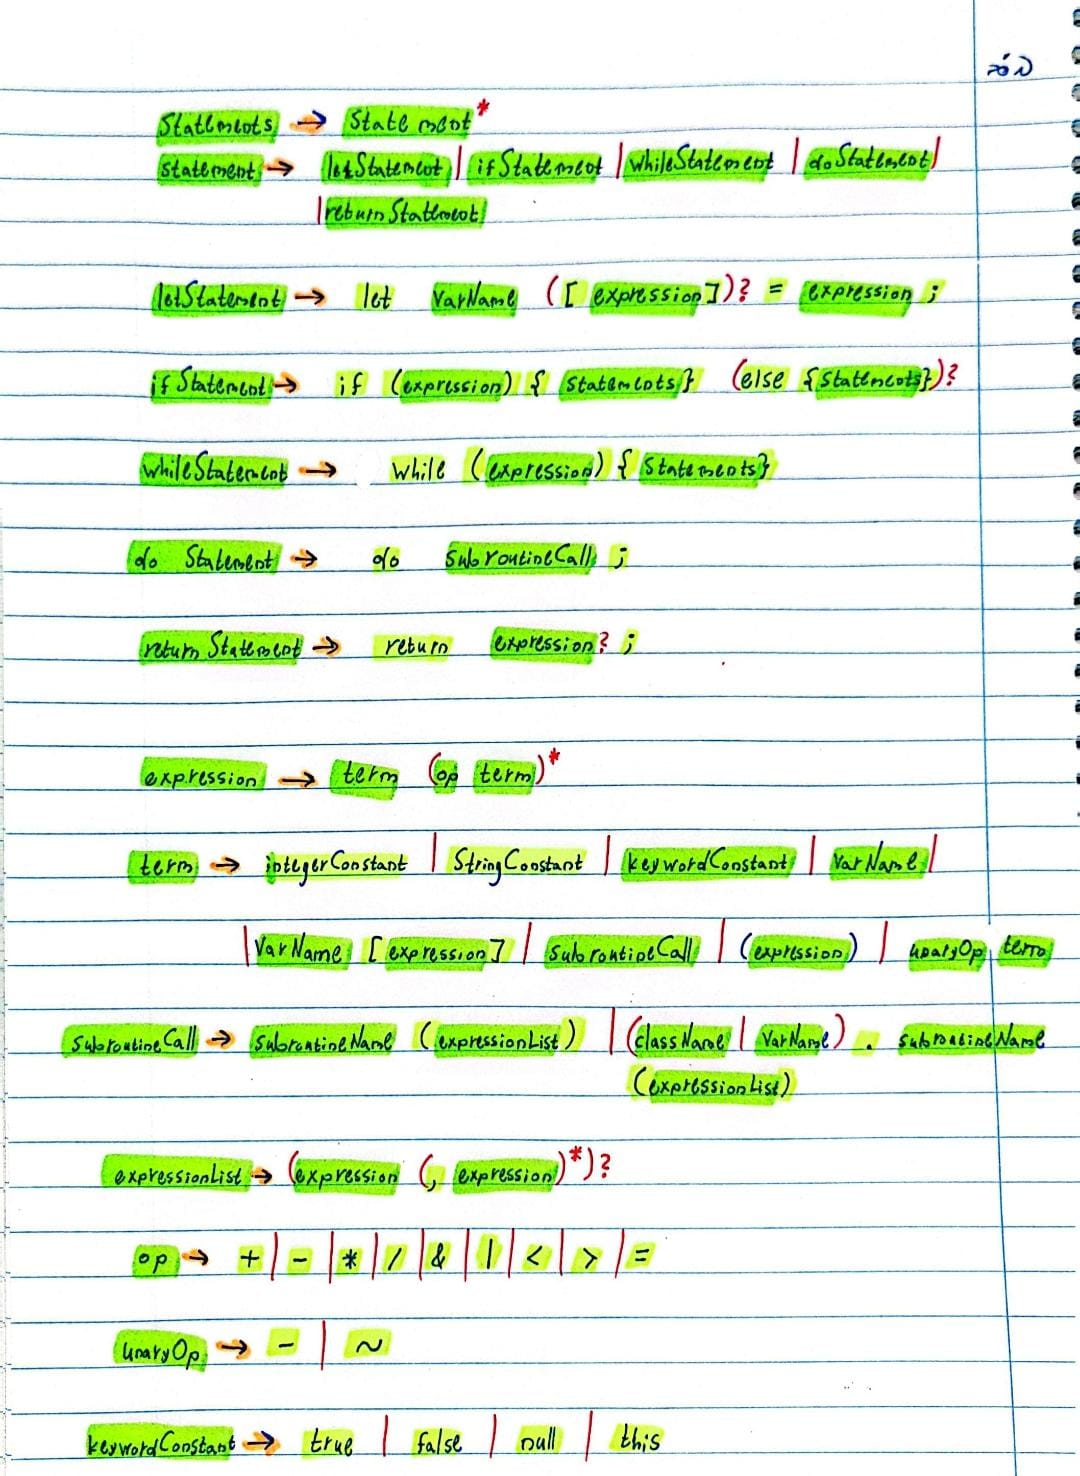 Statements → statement*
statement → letStatement | ifStatement | whileStatement | doStatement |
| returnStatement
letStatement → let varName ([ expression ])? = expression ;
ifStatement → if (expression) { statements } (else { statements })?
whileStatement → while (expression) { statements }
do Statement → do subroutineCall ;
return Statement → return expression? ;
expression → term (op term)*
term → integerConstant | StringConstant | keywordConstant | varName |
| varName [expression] | subroutineCall | (expression) | unaryOp term
subroutineCall → subroutineName (expressionList) | (className | varName) . subroutineName
(expressionList)
expressionList → (expression (, expression)*)?
op → + | - | * | / | & | | | < | > | =
unaryOp → - | ~
keywordConstant → true | false | null | this